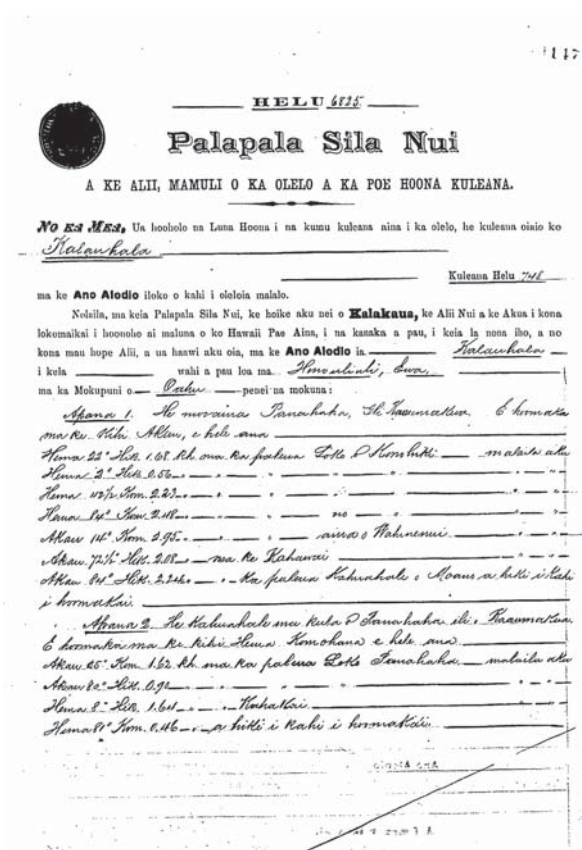 147
HELU 6825
Palapala Sila Nui
A KE ALII, MAMULI O KA OLELO A KA POE HOONA KULEANA.
NO KA MEA, Ua hooholo na Luna Hoona i na kumu kuleana aina i ka olelo, he kuleana oiaio ko
Kalauhala
Kuleana Helu 748
ma ke Ano Alodio iloko o kahi i oleloia malalo.
Nolaila, ma keia Palapala Sila Nui, ke hoike aku nei o Kalakaua, ke Alii Nui a ke Akua i kona
lokomaikai i hoonoho ai maluna o ko Hawaii Pae Aina, i na kanaka a pau, i keia la nona iho, a no
kona mau hope Alii, a ua haawi aku oia, ma ke Ano Alodio ia Kalauhala
i kela wahi a pau loa ma Honouliuli, Ewa,
ma ka Mokupuni o Oahu penei na mokuna:
Apana 1. He mooaina Panahaha, Ili Kaaumakua. E hoomaka
ma ke Kihi Akau, e hele ana
Hema 22° Hik. 1.68 kh ma ka palena Loko o Konohiki malaila aku
Hema 2° Hik 0.56 " " " " " "
Hema 42½ Kom. 2.23 " " " " " "
Hema 84° Kom. 2.48 " " no " "
Akau 14° Kom. 2.95 " " aina o Wahinenui " "
Akau 72½° Hik. 2.08 " ma ke Kahawai
Akau 84° Hik. 2.24 " " ka palena Kahuahale o a hiki i Kahi
i hoomakai.
Apana 2. He Kahuahale ma kula o Panahaha ili o Kaaumakua.
E hoomaka ma ke kihi Hema Komohana e hele ana
Akau 25° Kom. 1.62 kh ma ka palena Loko Panahaha malaila aku
Akau 80° Hik. 0.90 " " " " "
Hema 8° Hik. 1.64 " " Kahakai
Hema 81° Kom. 0.46 " a hiki i kahi i hoomakai.